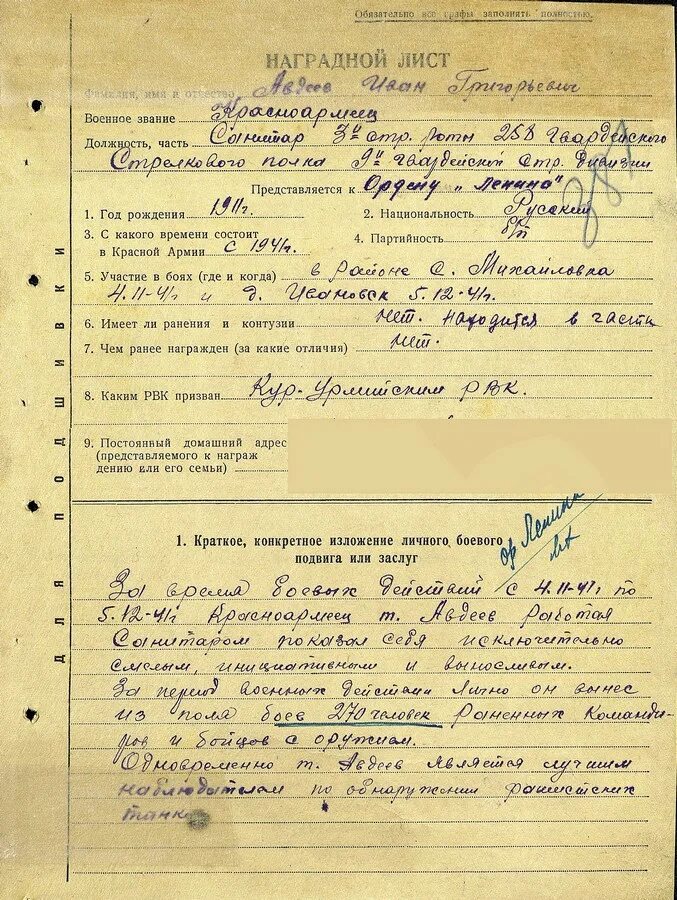 Обязательно все графы заполнять полностью.
НАГРАДНОЙ ЛИСТ
Фамилия, имя и отчество Авдеев Иван Григорьевич
Военное звание Красноармеец
Должность, часть Санитар 3й стр. роты 258 Гвардейского
Стрелкового полка 9й гвардейской Стр. Дивизии
Представляется к Ордену „Ленина"
1. Год рождения 1911г. 2. Национальность Русский
3. С какого времени состоит
в Красной Армии с 1941г. 4. Партийность б/п
5. Участие в боях (где и когда) в районе с. Михайловка
4.11-41г и д. Ивановск 5.12-41г.
6. Имеет ли ранения и контузии нет. находится в части
7. Чем ранее награжден (за какие отличия) нет.
8. Каким РВК призван Кур-Урмийским РВК.
9. Постоянный домашний адрес
(представляемого к награж
дению или его семьи)
ДЛЯ ПОДШИВКИ
1. Краткое, конкретное изложение личного боевого
подвига или заслуг
ор Ленина
За время боевых действий с 4.11-41г по
5.12-41г Красноармеец т. Авдеев работая
Санитаром показал себя исключительно
смелым, инициативным и выносливым.
За период военных действии лично он вынес
из поля боев 270 человек раненных Команди-
ров и бойцов с оружием.
Одновременно т. Авдеев является лучшим
наблюдателем по обнаружении фашистских
танк